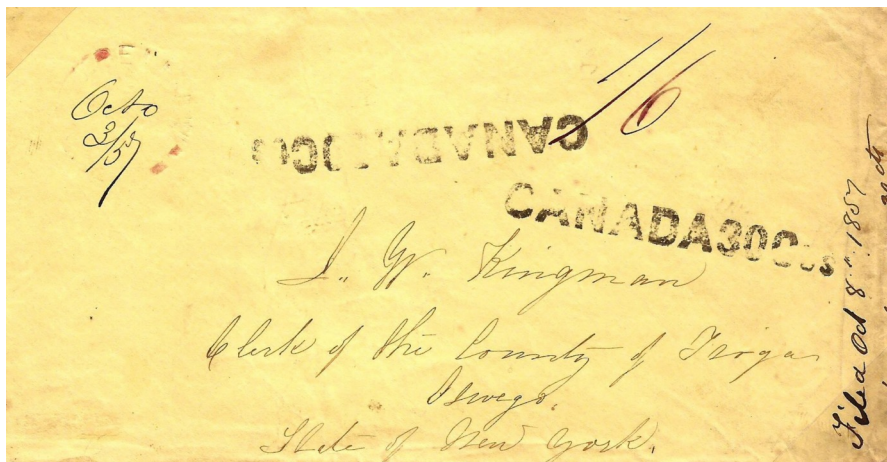 Octo
3/57
1/6
CANADA 30Cts
CANADA30Cts
L. W. Kingman
Clerk of the County of Tioga
Oswego.
State of New York.
Filed Oct 8th 1857